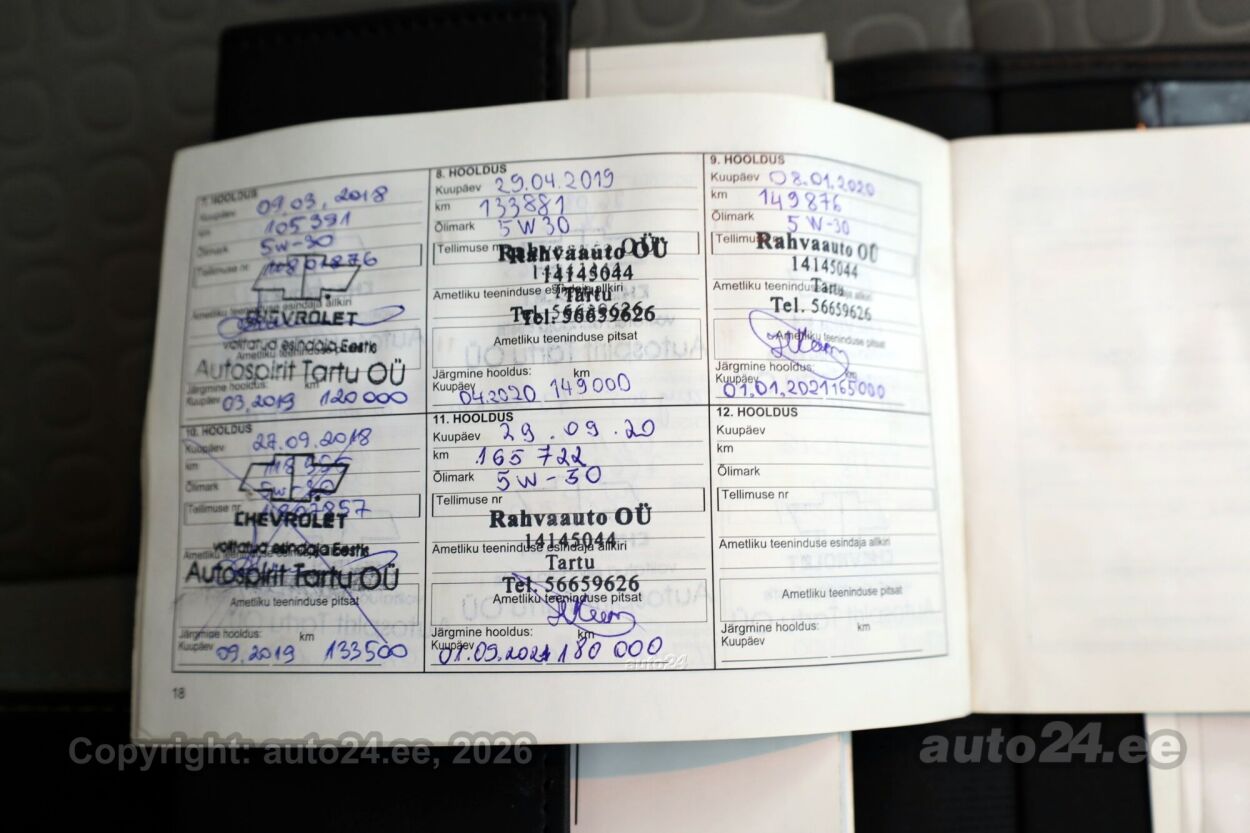 7. HOOLDUS
Kuupäev 09.03.2018
km 105391
Õlimark 5W-30
Tellimuse nr
Ametliku teeninduse esindaja allkiri
CHEVROLET
volitatud esindaja Eestis
Autospirit Tartu OÜ
Järgmine hooldus: km
Kuupäev 03.2019 120 000
8. HOOLDUS
Kuupäev 29.04.2019
km 133881
Õlimark 5W30
Tellimuse nr
Rahvaauto OÜ
14145044
Ametliku teeninduse esindaja allkiri
Tartu
Tel. 56659626
Ametliku teeninduse pitsat
Järgmine hooldus: km
Kuupäev 04.2020 149000
9. HOOLDUS
Kuupäev 08.01.2020
km 149876
Õlimark 5W-30
Tellimuse
Rahvaauto OÜ
14145044
Ametliku teeninduse esindaja allkiri
Tartu
Tel. 56659626
Ametliku teeninduse pitsat
Järgmine hooldus: km
Kuupäev 01.01.2021 165000
10. HOOLDUS
Kuupäev 27.09.2018
km 118955
Õlimark 5W-30
Tellimuse nr
CHEVROLET
volitatud esindaja Eestis
Autospirit Tartu OÜ
Ametliku teeninduse pitsat
Järgmine hooldus: km
Kuupäev 09.2019 133500
11. HOOLDUS
Kuupäev 29.09.20
km 165 722
Õlimark 5W-30
Tellimuse nr
Rahvaauto OÜ
14145044
Ametliku teeninduse esindaja allkiri
Tartu
Tel. 56659626
Ametliku teeninduse pitsat
Järgmine hooldus: km
Kuupäev 01.09.2021 180 000
12. HOOLDUS
Kuupäev
km
Õlimark
Tellimuse nr
Ametliku teeninduse esindaja allkiri
Ametliku teeninduse pitsat
Järgmine hooldus: km
Kuupäev
auto24
18
Copyright: auto24.ee, 2026
auto24.ee